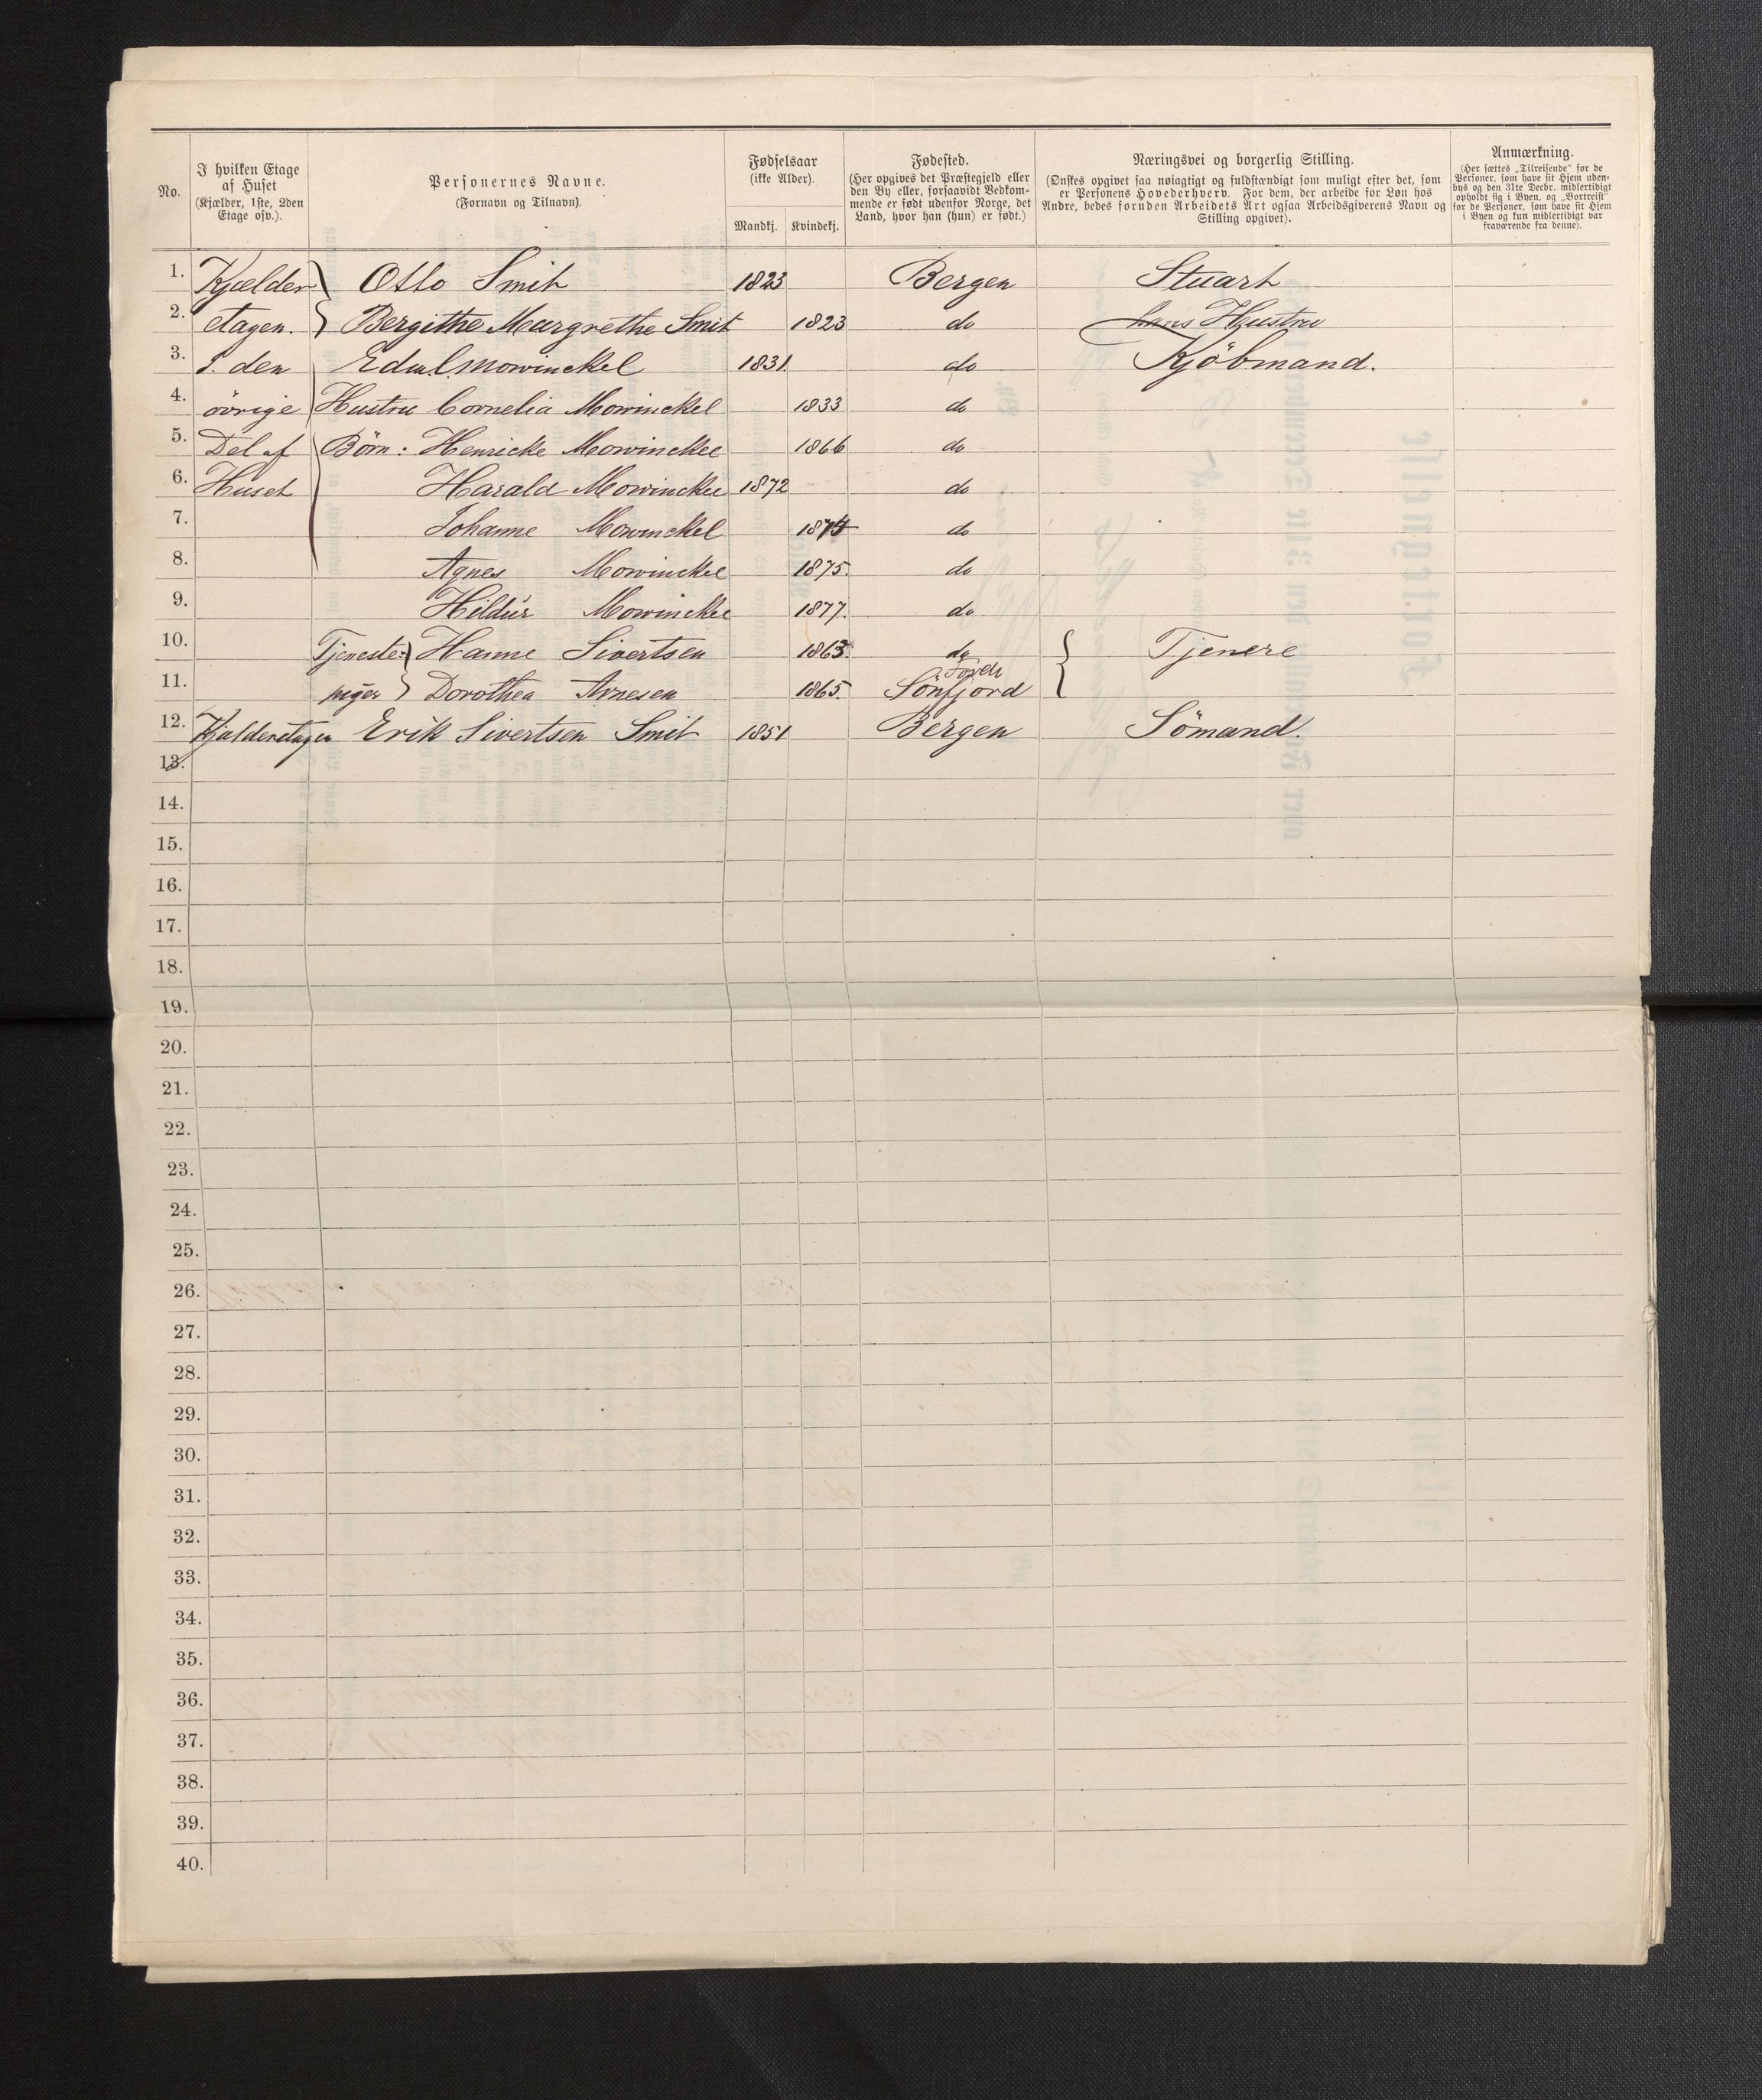 No.
I hvilken Etage af Huset (Kjælder, 1ste, 2den Etage osv.).
Personernes Navne. (Fornavn og Tilnavn).
Fødselsaar (ikke Alder). Mandkj. Kvindekj.
Fødested. (Her opgives det Præstegjeld eller den By eller, forsaavidt Vedkommende er født udenfor Norge, det Land, hvor han (hun) er født.)
Næringsvei og borgerlig Stilling. (Ønskes opgivet saa nøiagtigt og fuldstændigt som muligt efter det, som er Personens Hovederhverv. For dem, der arbeide for Løn hos Andre, bedes foruden Arbeidets Art ogsaa Arbeidsgiverens Navn og Stilling opgivet).
Anmærkning. (Her sættes „Tilreisende" for de Personer, som have sit Hjem udenbys og den 31te Decbr. midlertidigt opholdt sig i Byen, og „Bortreist" for de Personer, som have sit Hjem i Byen og kun midlertidigt var fraværende fra denne).
1. Kjælder Otto Smit 1823 Bergen Stuart
2. etagen. Bergithe Margrethe Smit 1823 do hans Hustru
3. I. den Edw. Mowinckel 1831 do Kjöbmand.
4. övrige Hustru Cornelia Mowinckel 1833 do
5. Del af Børn: Henricke Mowinckel 1866 do
6. Huset Harald Mowinckel 1872 do
7. Johanne Mowinckel 1874 do
8. Agnes Mowinckel 1875. do
9. Hildür Mowinckel 1877. do
10. Tjeneste- Hanne Sivertsen 1863. do Tjenere
11. piger Dorothea Arnesen 1865. Förde Sönfjord
12. Kjælderetagen Erik Sivertsen Smit 1851 Bergen Sömand.
13.
14.
15.
16.
17.
18.
19.
20.
21.
22.
23.
24.
25.
26.
27.
28.
29.
30.
31.
32.
33.
34.
35.
36.
37.
38.
39.
40.